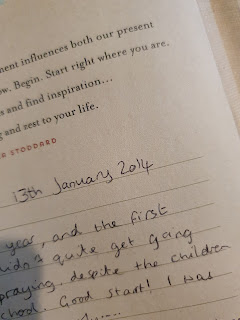 ment influences both our present
ow. Begin. Start right where you are.
s and find inspiration...
g and zest to your life.
STODDARD
13th January 2014
year, and the first
didn't quite get going
praying, despite the children
chool. Good start! I was